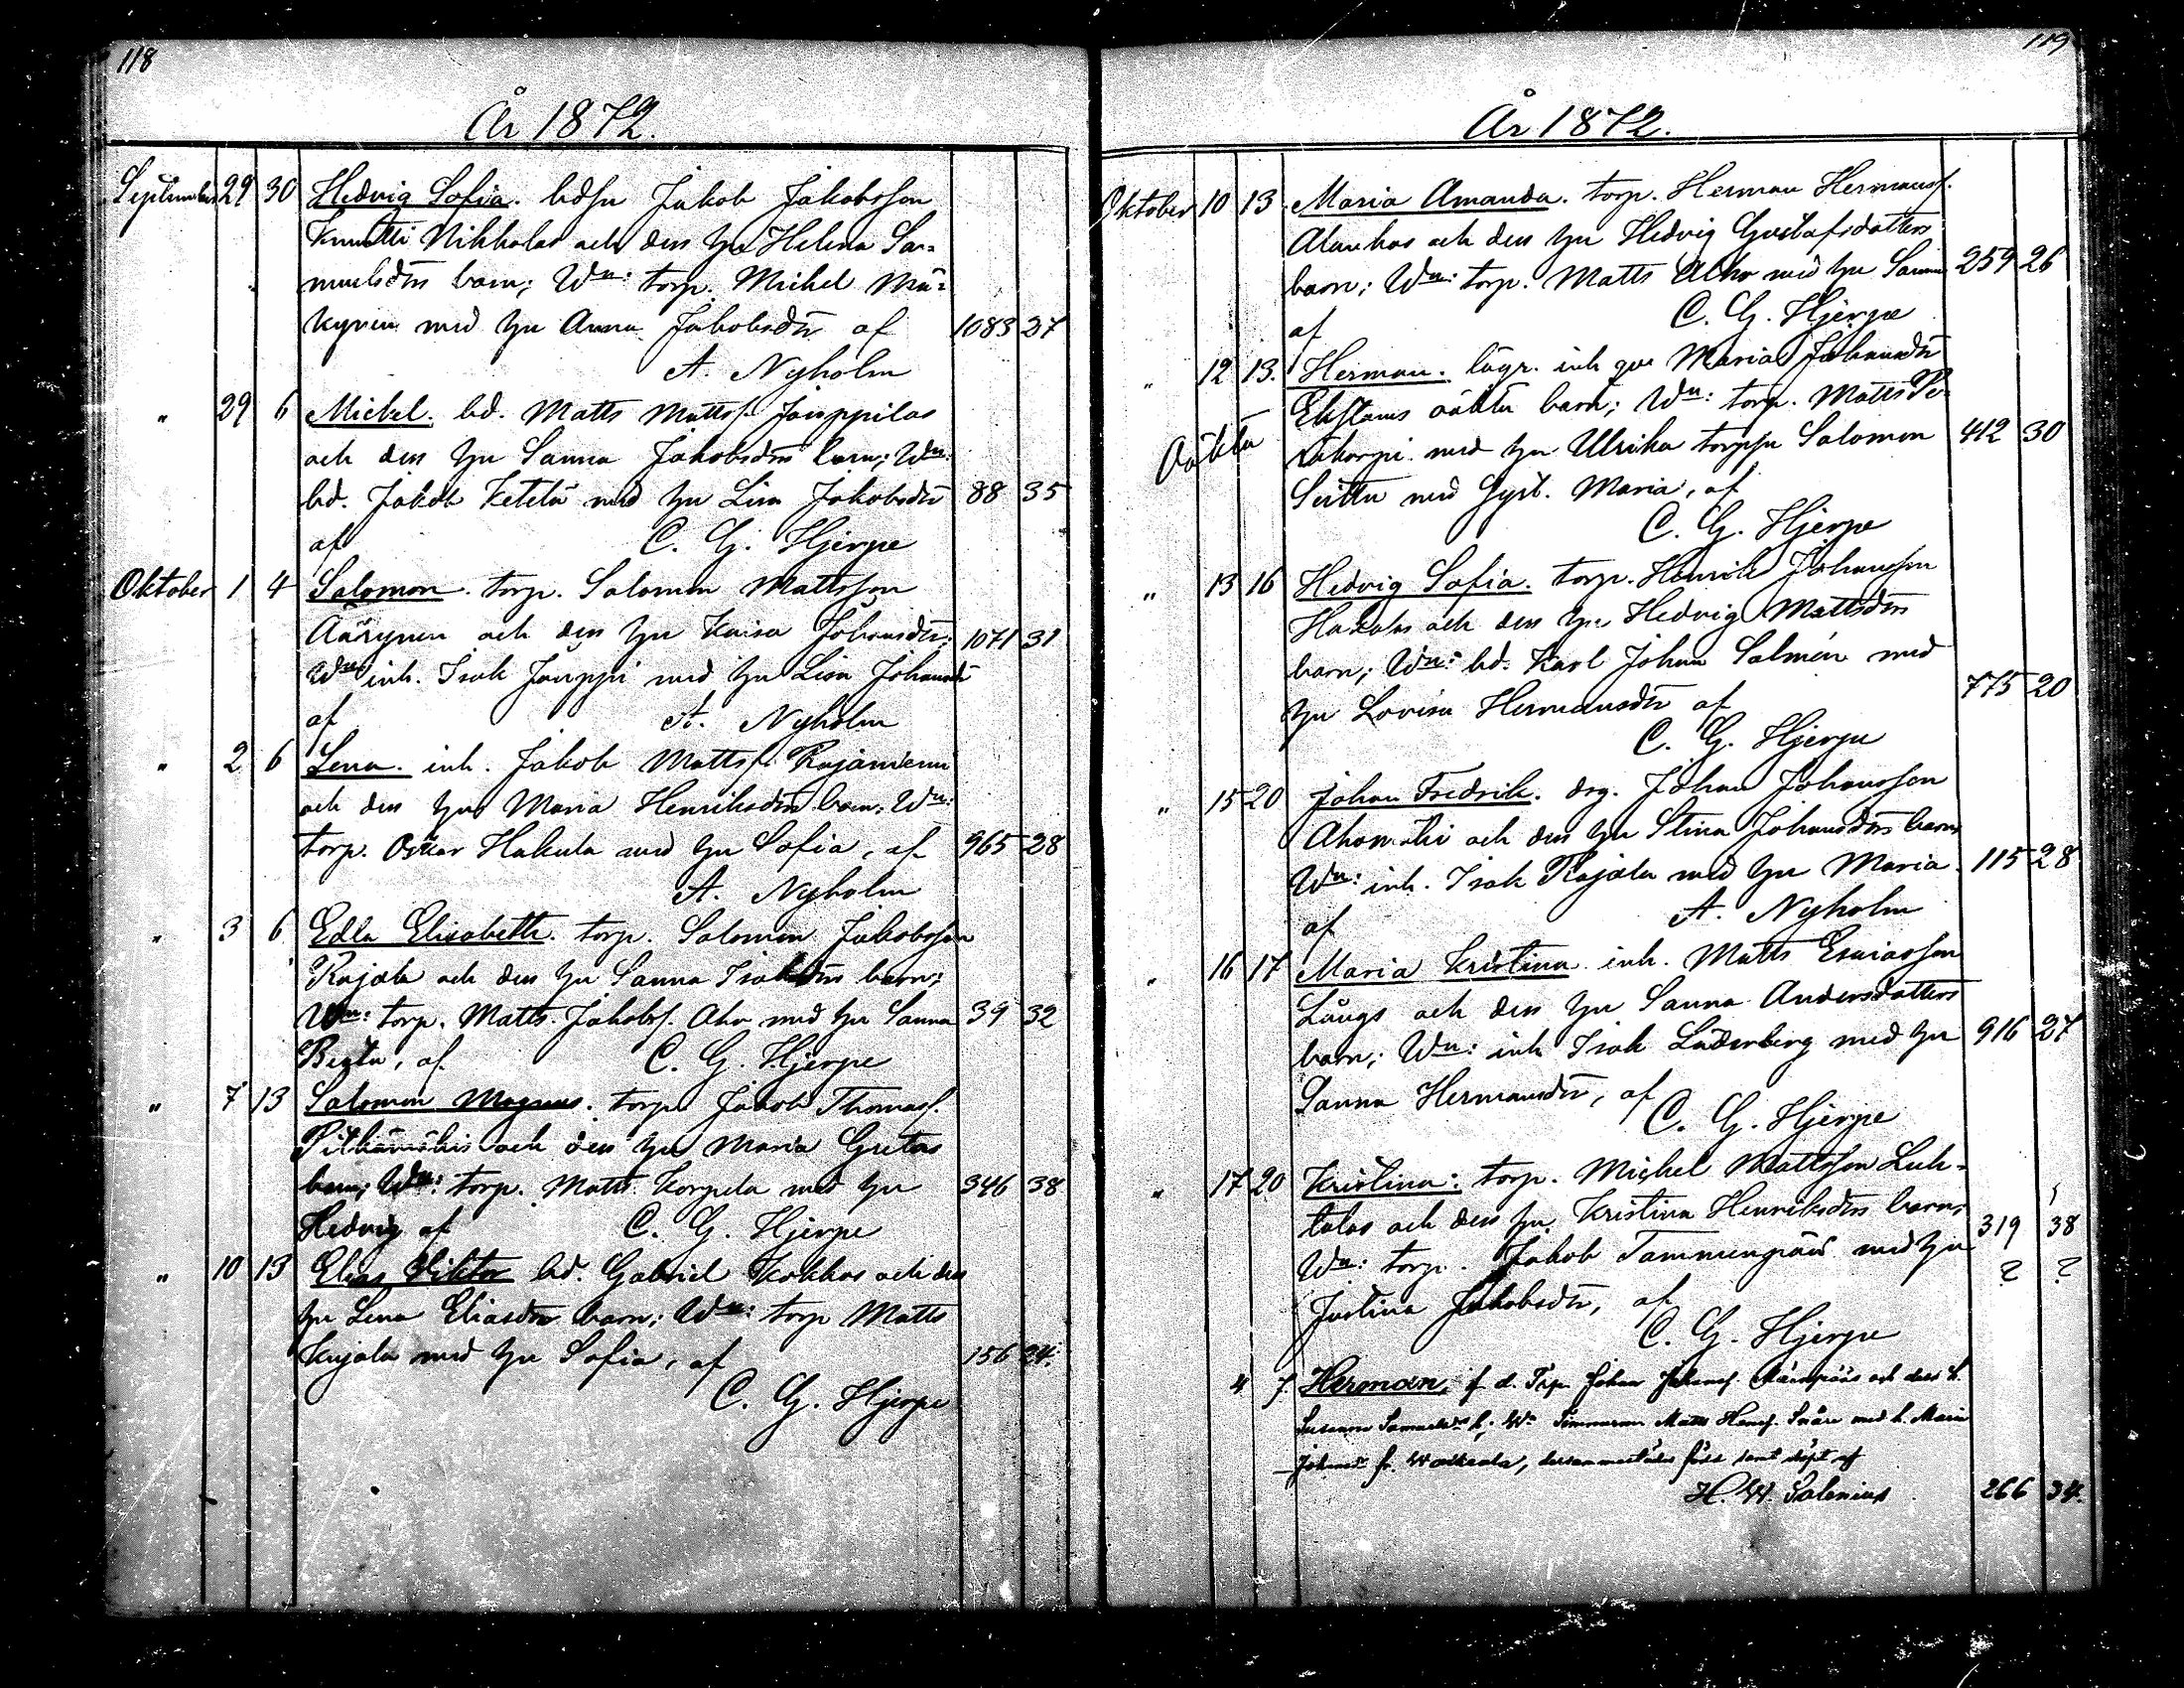 118
År 1872.
September 29 30 Hedvig Sofia. bdsn Jakob Jakobsson
Knuutti Nikkolas och dess hu Helena Sa=
muelsdrs barn; Wn: torp. Michel Mä=
kynen med hu Anna Jakobsdr af 1083 27
A. Nyholm
" 29 6 Mickel. bd. Matts Mattsf. Jouppilas
och dess hu Sanna Jakobsdrs barn; Wn:
bd. Jakob Ketelä med hu Lisa Jakobsdr 88 35
af C. G. Hjerpe
Oktober 1 4 Salomon. torp. Salomon Mattsson
Äärynen och dess hu Kaisa Johansdr; 1071 31
Wn: inh. Isak Jouppi med hu Lisa Johansdr
af A. Nyholm
" 2 6 Lena. inh. Jakob Mattsf. Rajaniemi
och dess hus Maria Henriksdrs barn; Wn:
torp. Oskar Hakula med hu Sofia, af 965 28
A. Nyholm
" 3 6 Edla Elisabeth. torp. Salomon Jakobsson
Rajala och dess hu Sanna Isaksdrs barn;
Wn: torp. Matts Jakobsf. Aho med hu Sanna 39 32
Berta, af C. G. Hjerpe
" 7 13 Salomon Magnus. torp Jakob Thomasf.
Pitkämäkis och dess hu Maria Gretas
barn; Wn: torp. Matts Korpela med hu 346 38
Hedvig af C. G. Hjerpe
" 10 13 Elias Viktor bd. Gabriel Kokkos och dess
hu Lena Eliasdrs barn; Wn: torp Matts
Kujala med hu Sofia, af 156 24.
C. G. Hjerpe
119
År 1872.
Oktober 10 13 Maria Amanda. torp. Herman Hermansf.
Alankos och dess hu Hedvig Gustafsdotters
barn; Wn: torp. Matts Alho med hu Sanna 259 26
af C. G. Hjerpe
" 12 13. Herman. lägr. inh qvn Maria Johansdr
Ekstams oäkta barn; Wn: torp. Matts Pe=
Oäkta räkorpi med hu Ulrika torpsn Salomon 412 30
Seittu med Syst. Maria, af
C. G. Hjerpe
" 13 16 Hedvig Sofia. torp. Henrik Johansson
och dess hu Hedvig Mattsdrs
barn; Wn: bd. Karl Johan Salmén med
hu Lovisa Hermansdr af 775 20
C. G. Hjerpe
" 15 20 Johan Fredrik. drg. Johan Johansson
Ahomäki och dess hu Stina Johansdrs barn;
Wn: inh. Isak Rajala med hu Maria 115 28
af A. Nyholm
" 16 17 Maria Kristina inh. Matts Esaiasson
Långs och dess hu Sanna Andersdotters
barn; Wn: inh Isak Söderberg med hu 916 27
Sanna Hermansdr, af
C. G. Hjerpe
" 17 20 Kristina: torp. Michel Mattsson Luh=
talas och dess hu Kristina Henriksdrs barn; 319 38
Wn: torp. Jakob Tammenpää med hu ? ?
Justina Jakobsdr, af
C. G. Hjerpe
4 7. Herman, f. d. Trp. Johan Johansf. och dess h.
Susanna Samuelsdrs b; Wn Timmerm Matts Hansf. Snåre med h. Maria
Johansdr fr. dersammastädes född samt döpt af
H. W. Salenius 266 34.